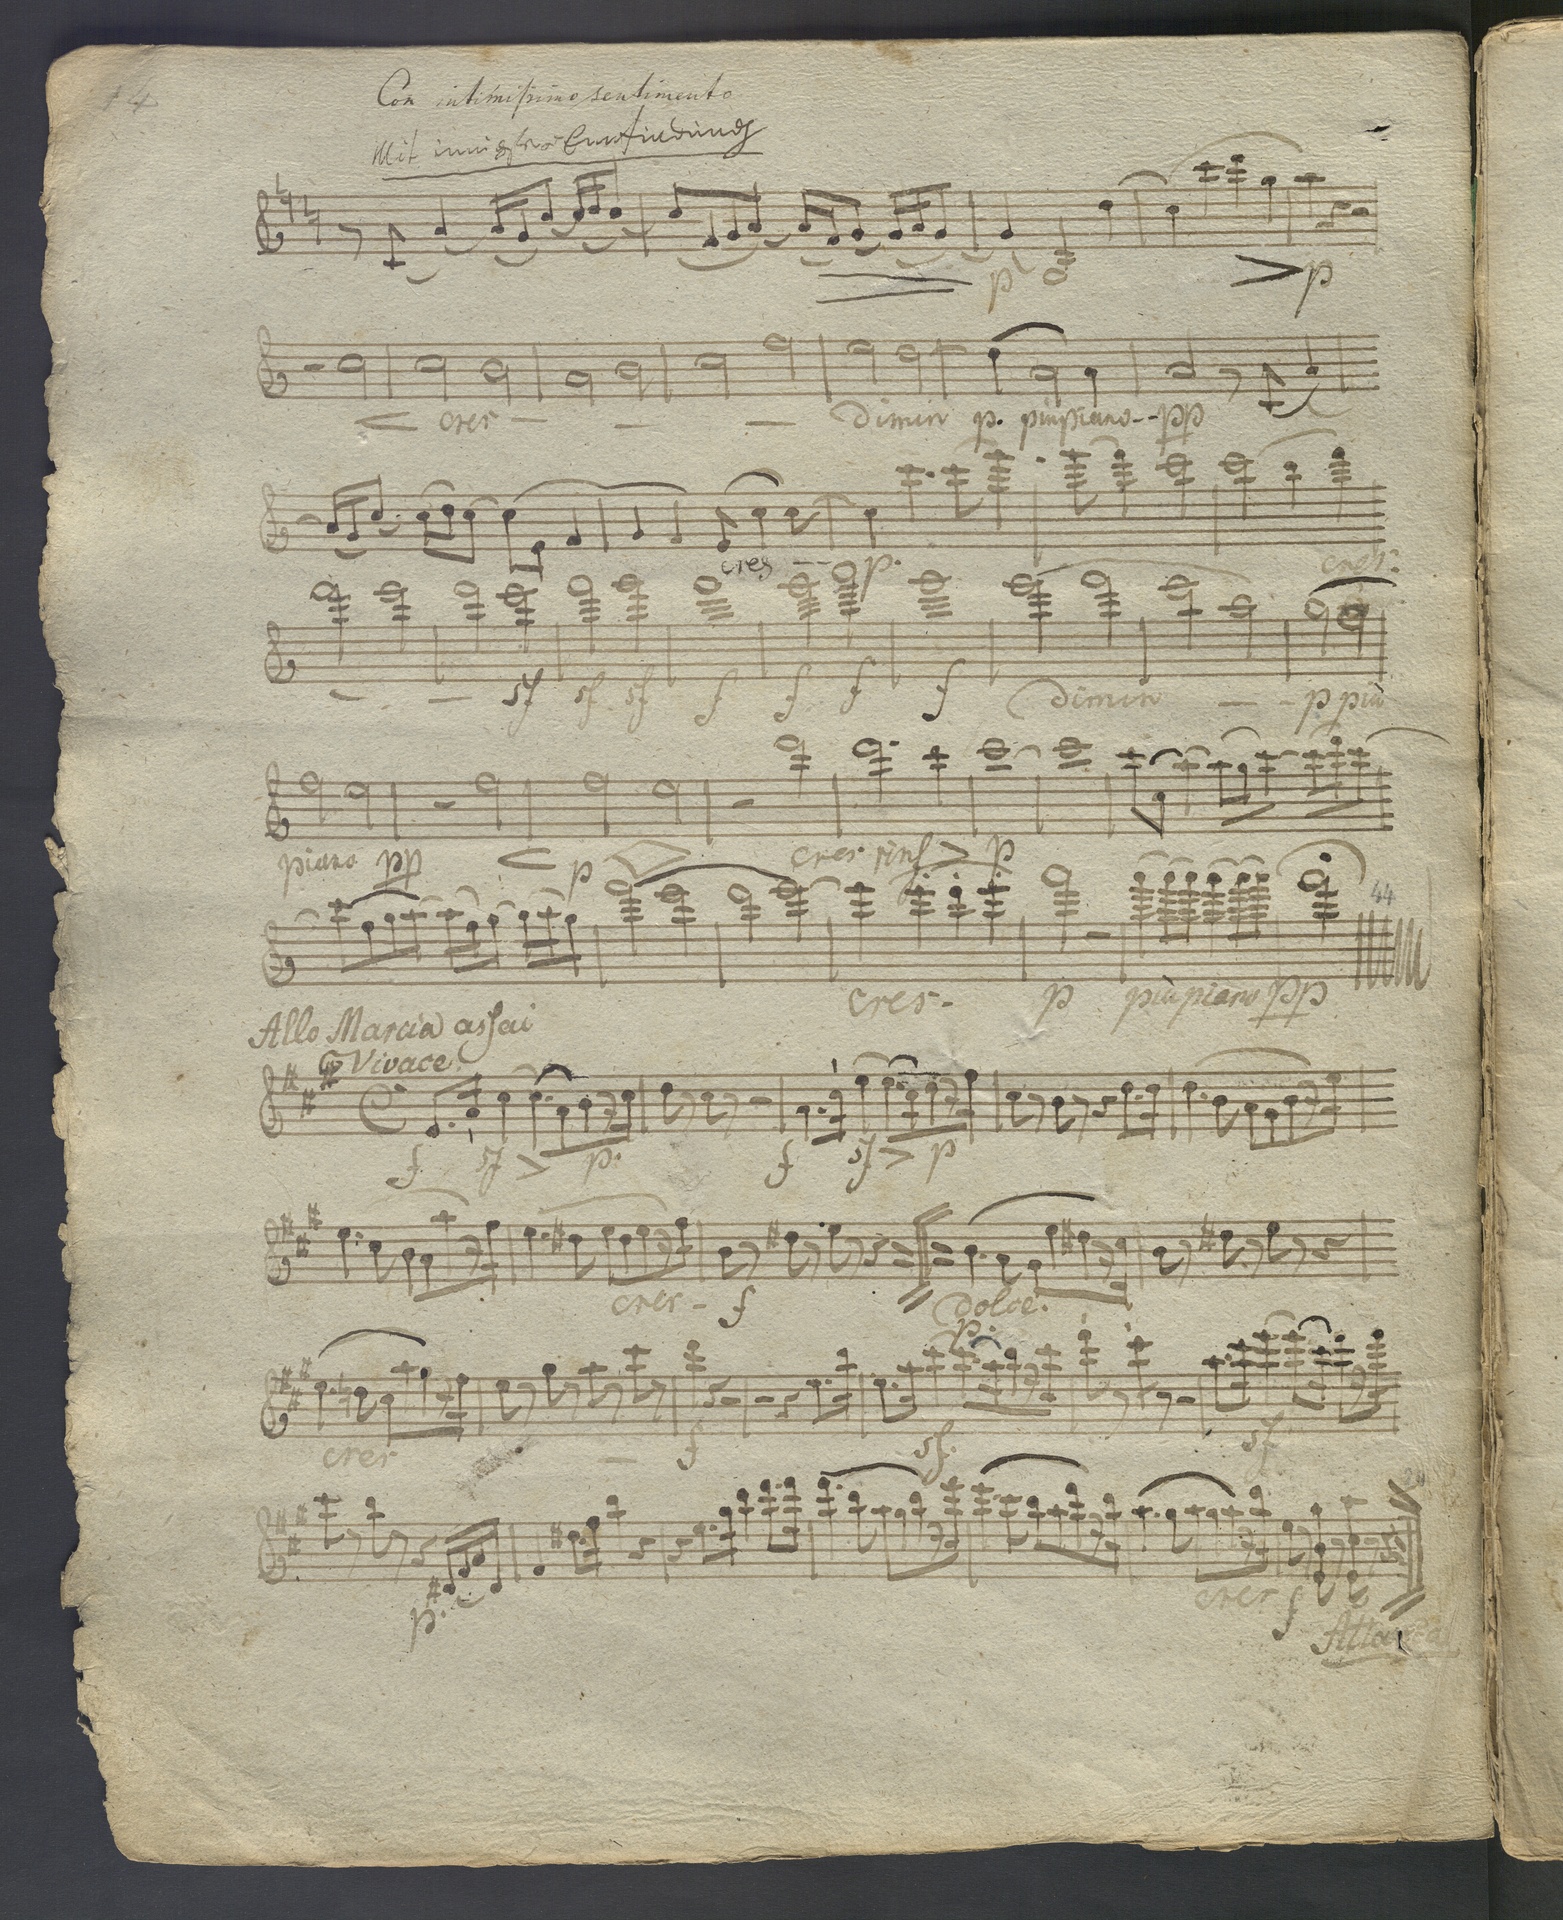 14
Con intimissimo sentimento
Mit innigster Empfindung
p p
cres - - - dimin p. piupiano - - pp
cres - - p. cres:
- - sf sf sf f f f f dimin - - p piu
piano pp p cres rinf p
44
cres - p piu piano pp
Allo Marcia assai
Vivace
f sf p. f sf p
cres - f dolce.
p.
cres - f sf. sf
p. cres f